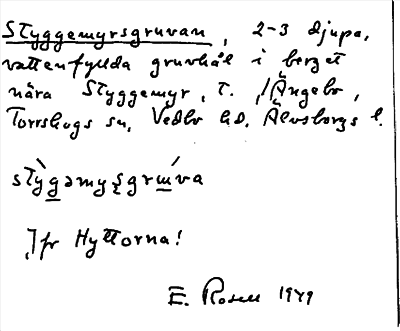 Styggemyrsgruvan, 2-3 djupa,
vattenfyllda gruvhål i berget
nära Styggemyr, t. Ängebo,
Torrskogs sn, Vedbo hd. Älvsborgs l.
stỳgəmyʂgrúva
Jfr Hyttorna!
E. Rosell 1949